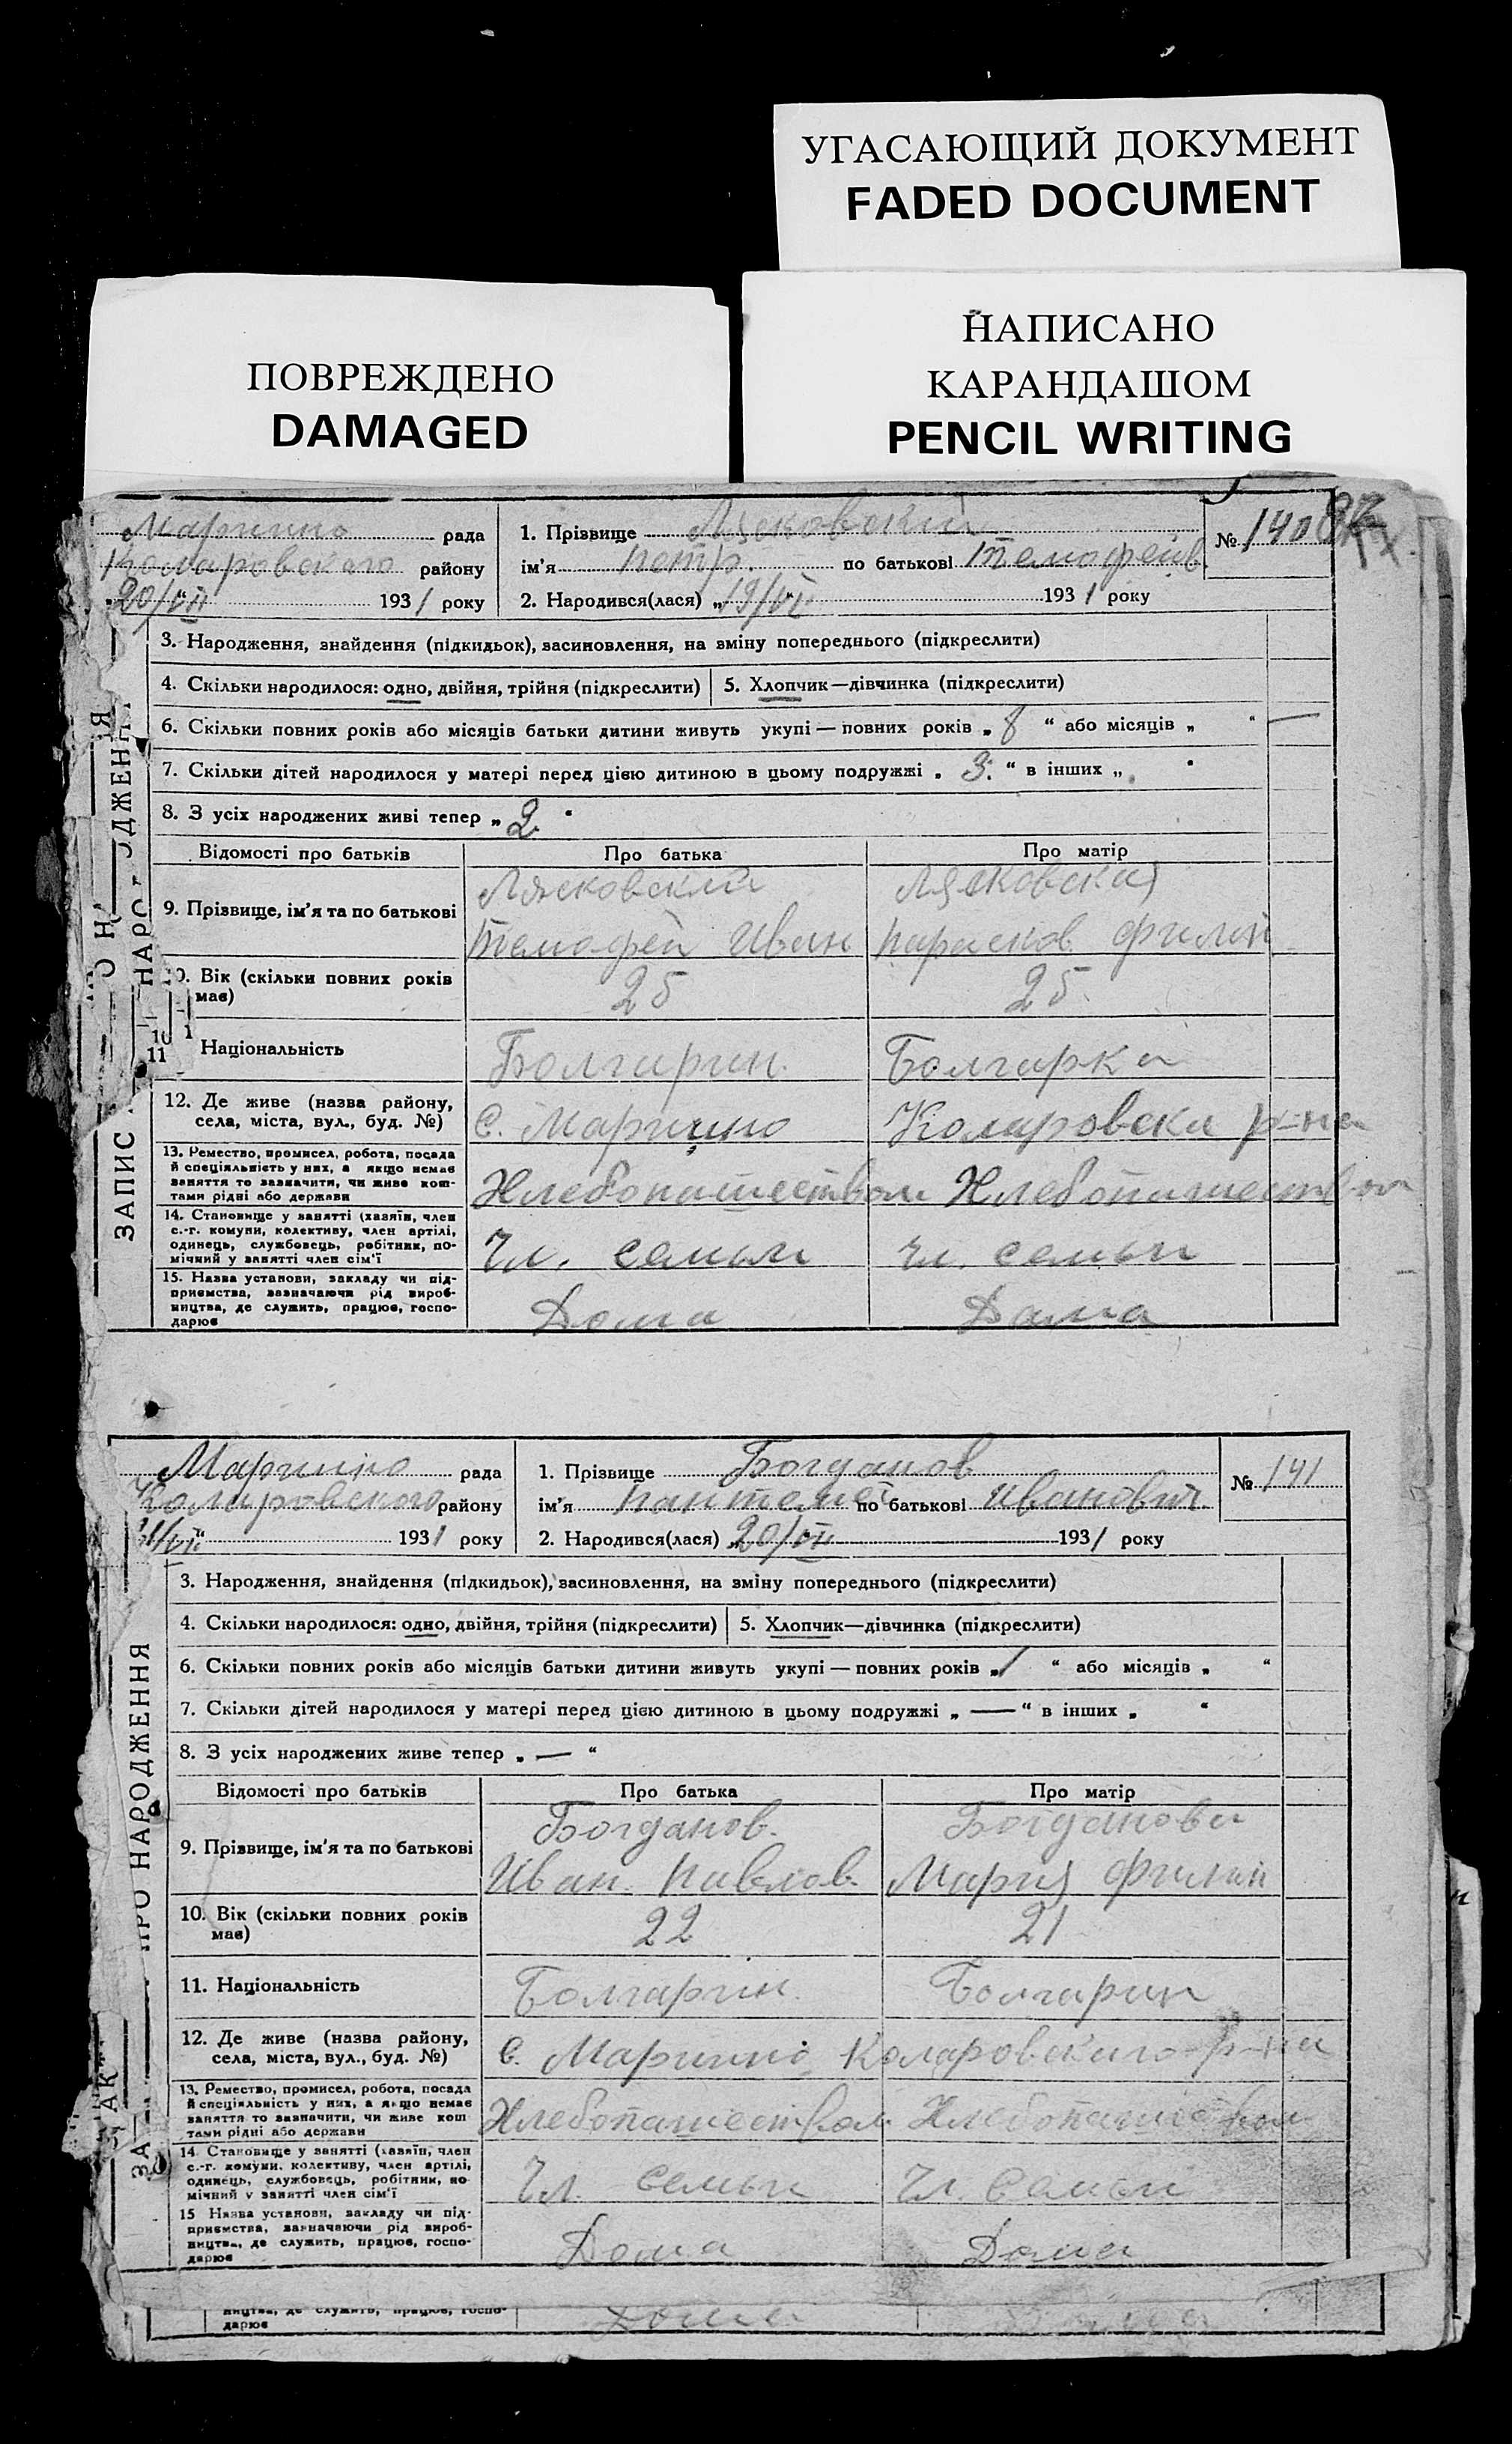 УГАСАЮЩИЙ ДОКУМЕНТ
FADED DOCUMENT
ПОВРЕЖДЕНО
DAMAGED
НАПИСАНО
КАРАНДАШОМ
PENCIL WRITING
Марино рада
Коларовского району
20/VII 1931 року
1. Прізвище Лясковский
ім'я Петр. по батькові Темофейв.
2. Народився(лася) „19/VII 1931 року
№ 140
3. Народження, знайдення (підкидьок), засиновлення, на зміну попереднього (підкреслити)
4. Скільки народилося: одно, двійня, трійня (підкреслити) 5. Хлопчик—дівчинка (підкреслити)
6. Скільки повних років або місяців батьки дитини живуть укупі — повних років „ 8 “ або місяців „ “ —
7. Скільки дітей народилося у матері перед цією дитиною в цьому подружжі „ 3. “ в інших „ “
8. З усіх народжених живі тепер „ 2. “
Відомості про батьків Про батька Про матір
9. Прізвище, ім'я та по батькові
Лясковский Лясковская
Темофей Иван Парасков. Филип
10. Вік (скільки повних років має) 25 25
11 Національність Болгарин. Болгарка
12. Де живе (назва району, села, міста, вул., буд. №) С. Марино Коларовска р-на
13. Ремество, промисел, робота, посада
й спеціяльність у них, а якщо немає
заняття то зазначити, чи живе кош-
тами рідні або держави
Хлебопашеством Хлебопашеством
14. Становище у занятті (хазяїн, член
с.-г. комуни, колективу, член артілі,
одинець, службовець, робітник, по-
мічний у занятті член сім'ї
Чл. семьи Чл. семьи
15. Назва установи, закладу чи під-
приємства, зазначаючи рід вироб-
ництва, де служить, працює, госпо-
дарює
Дома Дома
ЗАПИС
Марино рада
Коларовского району
1931 року
1. Прізвище Богданов
ім'я Пантелей по батькові Иванович
2. Народився(лася) „20/VII 1931 року
№ 141
3. Народження, знайдення (підкидьок), засиновлення, на зміну попереднього (підкреслити)
4. Скільки народилося: одно, двійня, трійня (підкреслити) 5. Хлопчик—дівчинка (підкреслити)
6. Скільки повних років або місяців батьки дитини живуть укупі — повних років „ 1 “ або місяців „ “
7. Скільки дітей народилося у матері перед цією дитиною в цьому подружжі „ — “ в інших „ “
8. З усіх народжених живе тепер „ — “
Відомості про батьків Про батька Про матір
9. Прізвище, ім'я та по батькові
Богданов. Богданова
Иван. Павлов. Мария Филип
10. Вік (скільки повних років має) 22 21
11. Національність Болгарин. Болгарин
12. Де живе (назва району, села, міста, вул., буд. №) С. Марино Коларовского р-на
13. Ремество, промисел, робота, посада
й спеціяльність у них, а якщо немає
заняття то зазначити, чи живе кош
тами рідні або держави
Хлебопашеством Хлебопашеством
14. Становище у занятті (хазяїн, член
с.-г. комуни, колективу, член артілі,
одинець, службовець, робітник, по
мічний у занятті член сім'ї
Чл. семьи Чл. Семьи
15 Назва установи, закладу чи під-
приємства, зазначаючи рід вироб-
ництва, де служить, працює, госпо-
дарює
Дома Дома
ПРО НАРОДЖЕННЯ
ництва, де служить, працює, госпо-
дарює
Дома